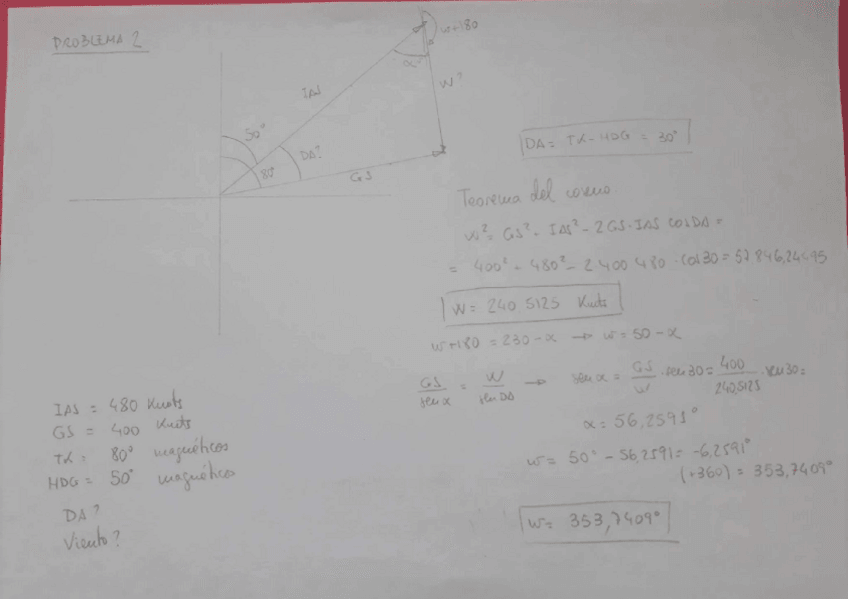 PROBLEMA 2
w+180
α
IAS
W?
50°
DA?
80°
GS
DA = TK - HDG = 30°
Teorema del coseno:
w² = GS² - IAS² - 2GS·IAS cosDA =
= 400² - 480² - 2·400·480 · cos30 = 57846,24495
W = 240,5125 Knots
w+180 = 230-α → w = 50-α
GS/senα = W/senDA → senα = GS/W · sen30 = 400/240,5125 · sen30 =
α = 56,2591°
w = 50° - 56,2591 = -6,2591°
(+360) = 353,7409°
w = 353,7409°
IAS = 480 Knots
GS = 400 Knots
TK = 80° magnéticos
HDG = 50° magnéticos
DA?
Viento?